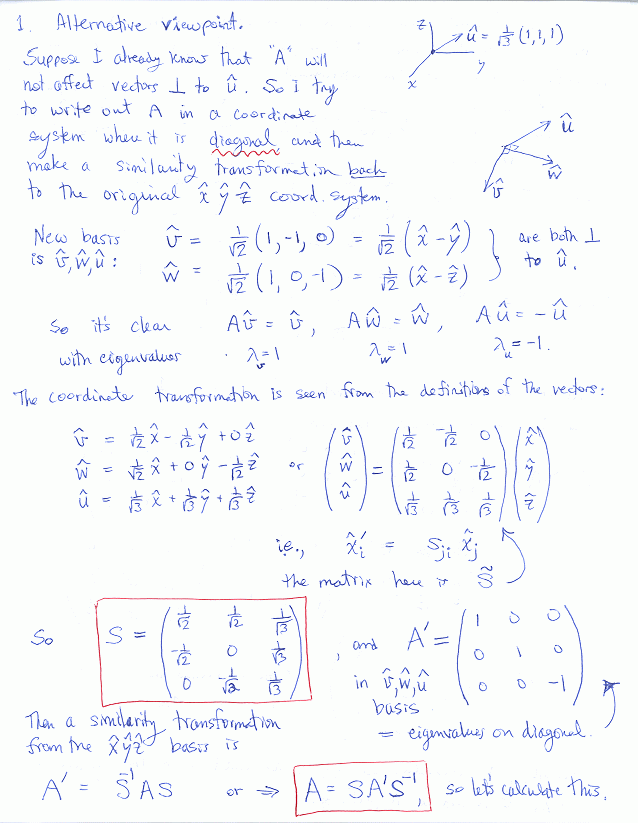 1. Alternative viewpoint.
z û = 1/√3 (1,1,1)
y
x
Suppose I already know that "A" will
not affect vectors ⊥ to û. So I try
to write out A in a coordinate
system where it is diagonal and then
make a similarity transformation back
to the original x̂ ŷ ẑ coord. system.
û
ŵ
v̂
New basis v̂ = 1/√2 (1,-1,0) = 1/√2 (x̂-ŷ) } are both ⊥
is v̂,ŵ,û: ŵ = 1/√2 (1,0,-1) = 1/√2 (x̂-ẑ) to û.
So it's clear Av̂ = v̂, Aŵ = ŵ, Aû = -û
with eigenvalues λ_v=1 λ_w=1 λ_u=-1.
The coordinate transformation is seen from the definitions of the vectors:
v̂ = 1/√2 x̂ - 1/√2 ŷ + 0ẑ
ŵ = 1/√2 x̂ + 0ŷ - 1/√2 ẑ
û = 1/√3 x̂ + 1/√3 ŷ + 1/√3 ẑ
or
(v̂ ŵ û) = (1/√2 -1/√2 0
1/√2 0 -1/√2
1/√3 1/√3 1/√3) (x̂ ŷ ẑ)
i.e., x̂'_i = S_ji x̂_j
the matrix here is S̃
So S = (1/√2 1/√2 1/√3
-1/√2 0 1/√3
0 -1/√2 1/√3)
, and A' = (1 0 0
0 1 0
0 0 -1)
in v̂,ŵ,û
basis
= eigenvalues on diagonal.
Then a similarity transformation
from the x̂ŷẑ basis is
A' = S⁻¹AS or ⇒ A = SA'S⁻¹, so let's calculate this.